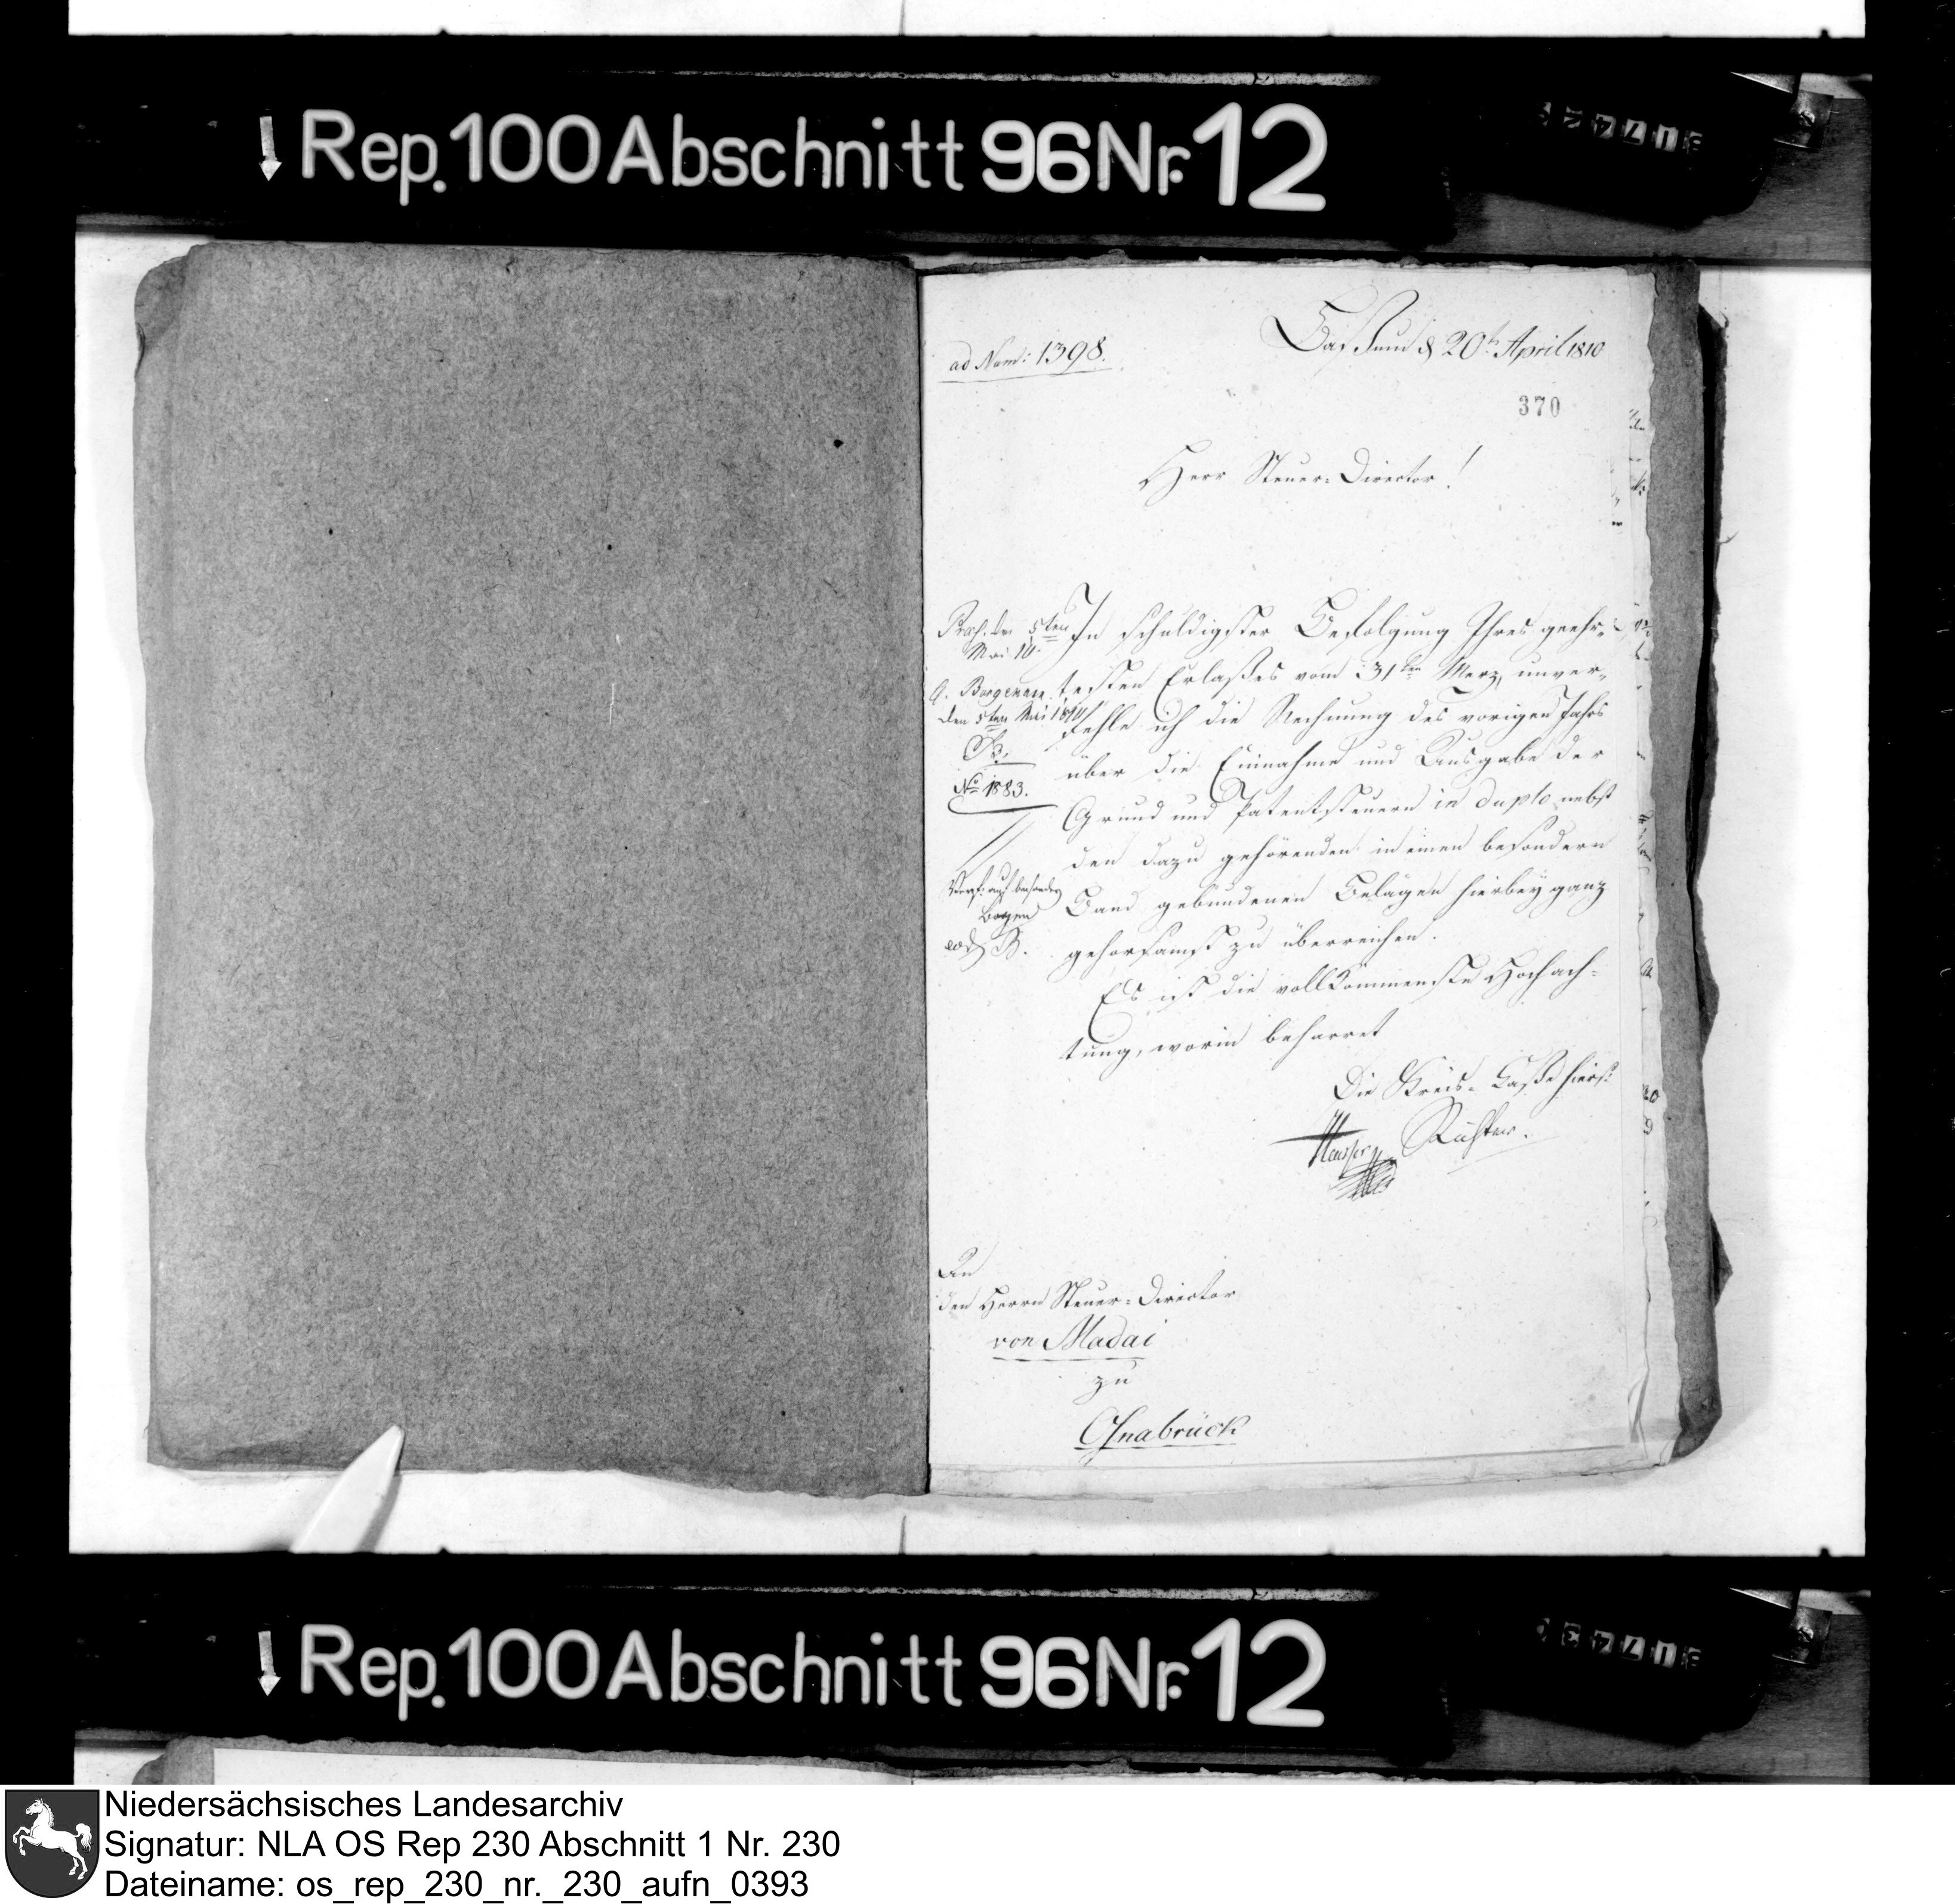 Rep. 100 Abschnitt 96 Nr. 12
ad Num: 1398.
Bassum d 20t April 1810
370
Herr Steuer-Director!
Praes. den 5ten
Mai 10.
den 5ten Mai 1810
B.
No 1883.
Verf: auf besonder
Bogen
eod B.
In schuldigster Befolgung Ihres geehr-
testen Erlaßes vom 31ten Merz, unver-
fehle ich die Rechnung des vorigen Jahrs
über die Einnahme und Ausgabe der
Grund und Patentsteuern in duplo nebst
den dazu gehörenden in einen besondern
Band gebundenen Belägen hierbey ganz
gehorsamst zu überreichen.
Es ist die vollkommenste Hochach-
tung, worin beharret
Die Kreis-Casse hies:
An
den Herrn Steuer-Director
von Madai
zu
Osnabrück
Rep. 100 Abschnitt 96 Nr. 12
Niedersächsisches Landesarchiv
Signatur: NLA OS Rep 230 Abschnitt 1 Nr. 230
Dateiname: os_rep_230_nr._230_aufn_0393